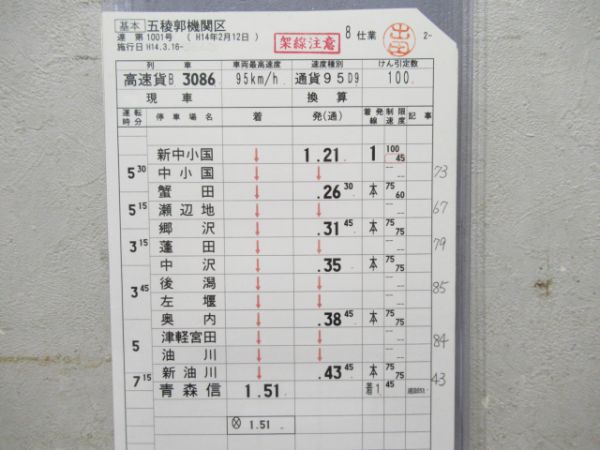 基本 五稜郭機関区
達 第1001号 ( H14年2月12日 )
施行日 H14.3.16-
架線注意
8 仕業
出区
2-
列車 車両最高速度 速度種別 けん引定数
高速貨B 3086 95km/h 通貨95D9 100
現車 換算
運転時分 停車場名 着 発(通) 着発線 制限速度 記事
新中小国 ↓ 1.21 1 100 45
5 30 中小国 ↓ ↓ 73
蟹田 ↓ .26 30 本 75 60
5 15 瀬辺地 ↓ ↓ 67
郷沢 ↓ .31 45 本 75 75
3 15 蓬田 ↓ ↓ 79
中沢 ↓ .35 本 75 75
3 45 後潟 ↓ ↓ 85
左堰 ↓ ↓
奥内 ↓ .38 45 本 75 75
5 津軽宮田 ↓ ↓ 84
油川 ↓ ↓
新油川 ↓ .43 45 本 75 75
7 15 青森信 1.51 着1 45 43
Ⓧ 1.51